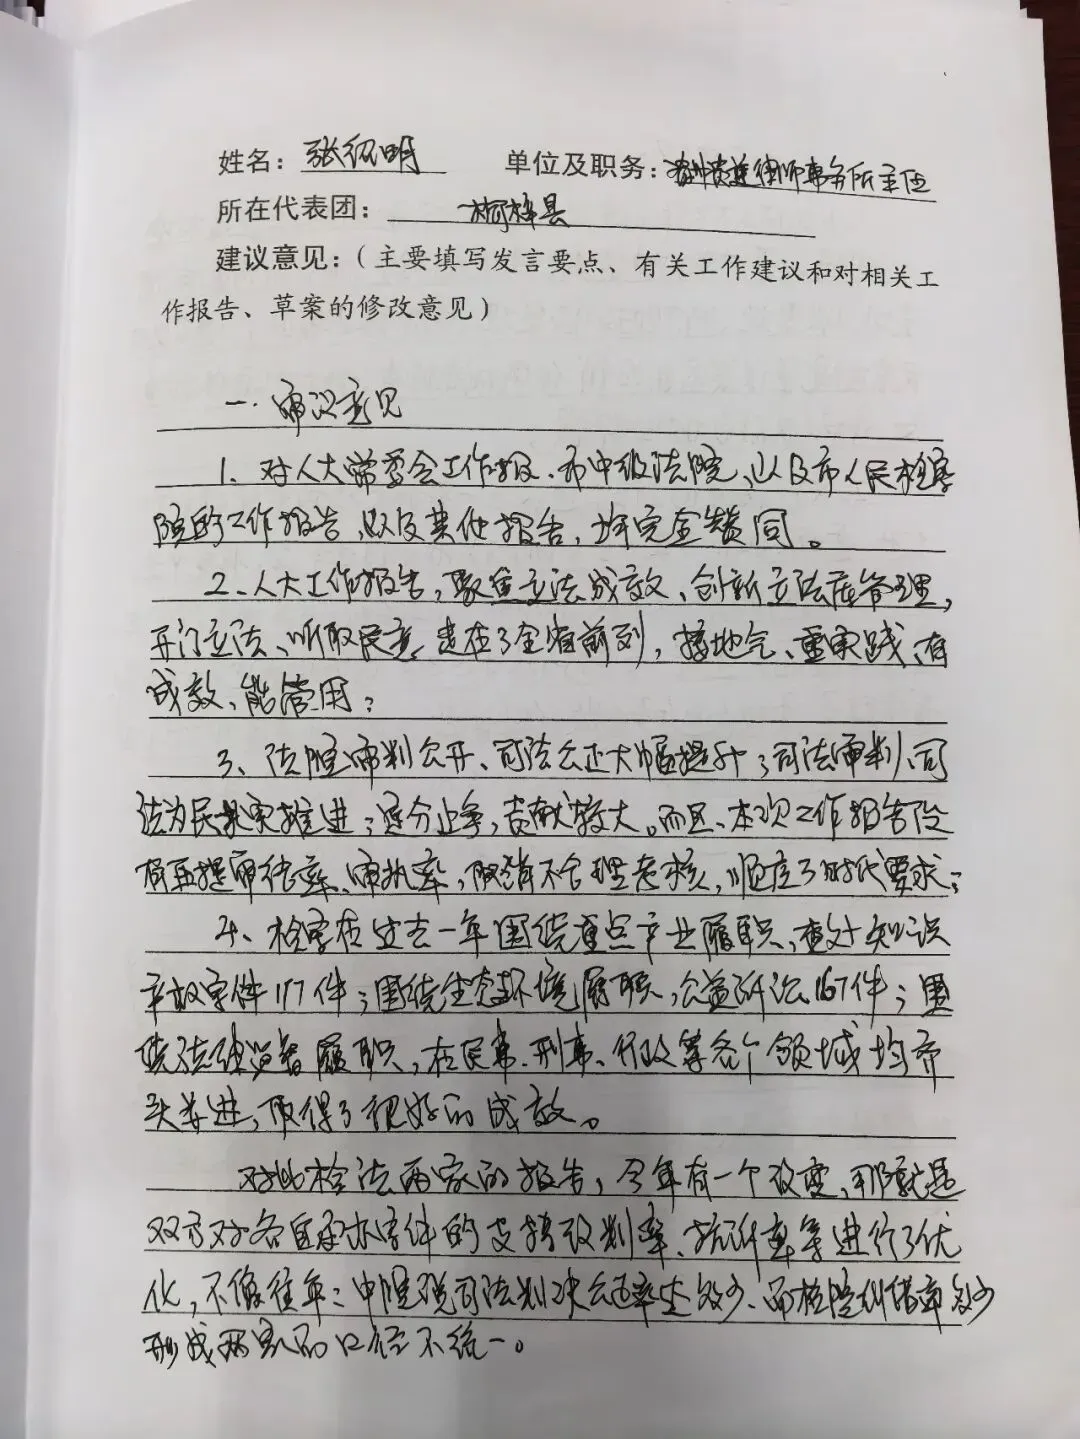 姓名：张绍明 单位及职务：贵州贵达律师事务所主任
所在代表团：桐梓县
建议意见：（主要填写发言要点、有关工作建议和对相关工
作报告、草案的修改意见）
一.审议意见
1、对人大常委会工作报、市中级法院、以及市人民检察
院的工作报告、以及其他报告，均完全赞同。
2、人大工作报告，聚焦立法成效、创新立法库管理，
开门立法、听取民意、走在了全省前列，接地气、重实践、有
成效、能管用；
3、法院审判公开、司法公正大幅提升；司法审判、司
法为民 实推进；定分止争，贡献较大。而且、本次工作报告没
有再提审结率、审执率，取消不合理考核，顺应了时代要求；
4、检察在过去一年围绕重点产业履职、查处知识
产权案件117件；围绕生态环境履职、公益诉讼167件；围
绕法律监督履职，在民事、刑事、行政等各个领域均齐
头并进，取得了很好的成效。
对比检法两家的报告，今年有一个改变，那就是
双方对各自承办案件的支持改判率、抗诉率等进行了优
化，不像往年：中院说司法判决 率 较少、而检院纠错率较少
形成两家的口径不统一。